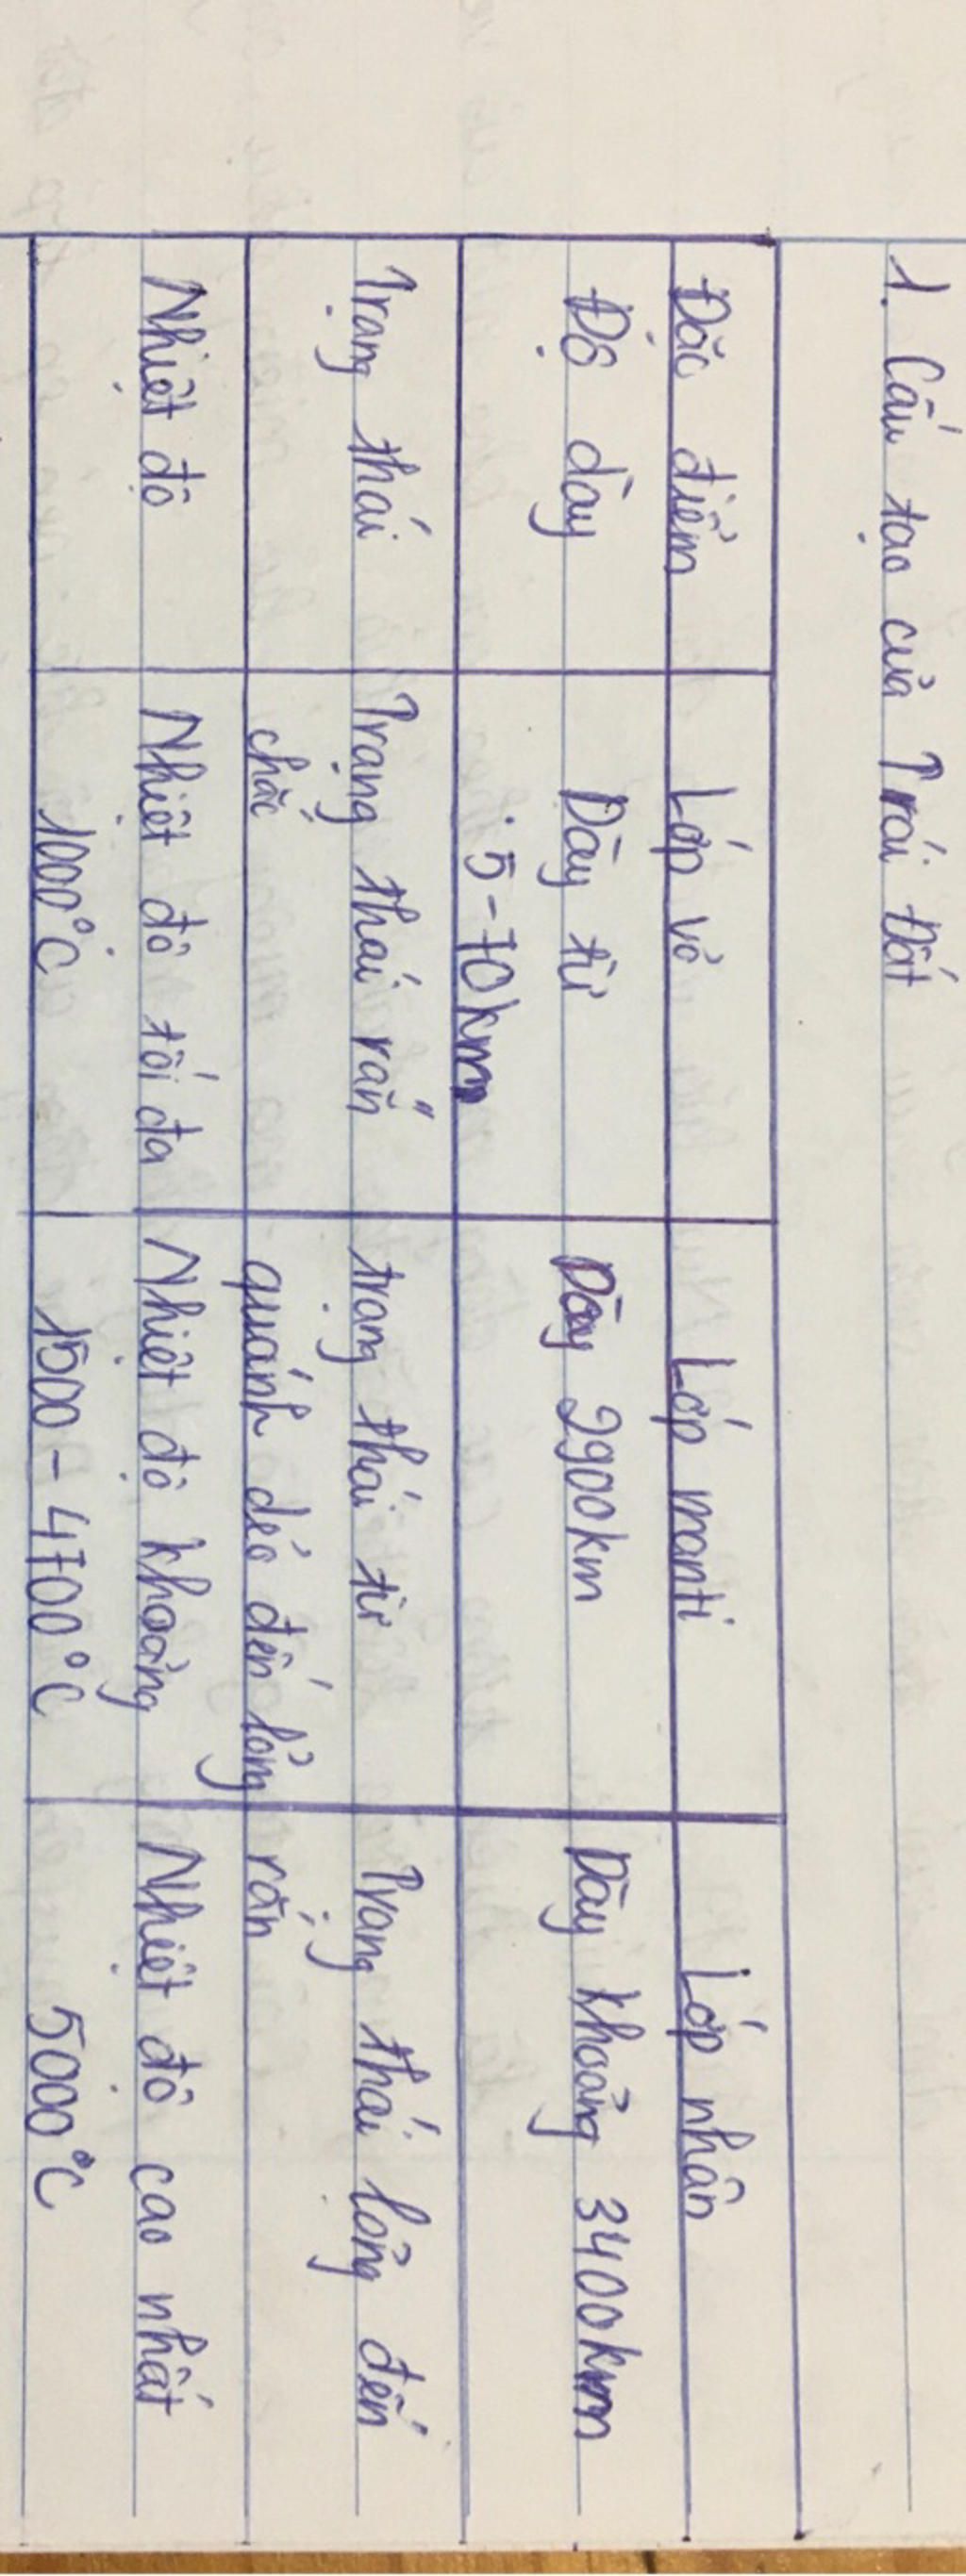 1. Cấu tạo của Trái Đất
Đặc điểm Lớp vỏ Lớp manti Lớp nhân
Độ dày Dày từ Dày 2900km Dày khoảng 3400km
5-70km
Trạng thái Trạng thái rắn trạng thái từ Trạng thái lỏng đến
chắc quánh dẻo đến lỏng rắn
Nhiệt độ Nhiệt độ tối đa Nhiệt độ khoảng Nhiệt độ cao nhất
1000°C 1500-4700°C 5000°C